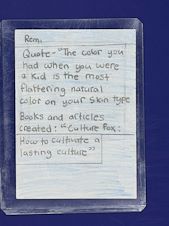 Rem.
Quote- "The color you
had when you were
a kid is the most
flattering natural
color on your skin type
Books and articles
created: "Culture Fox:
How to cultivate a
lasting culture"